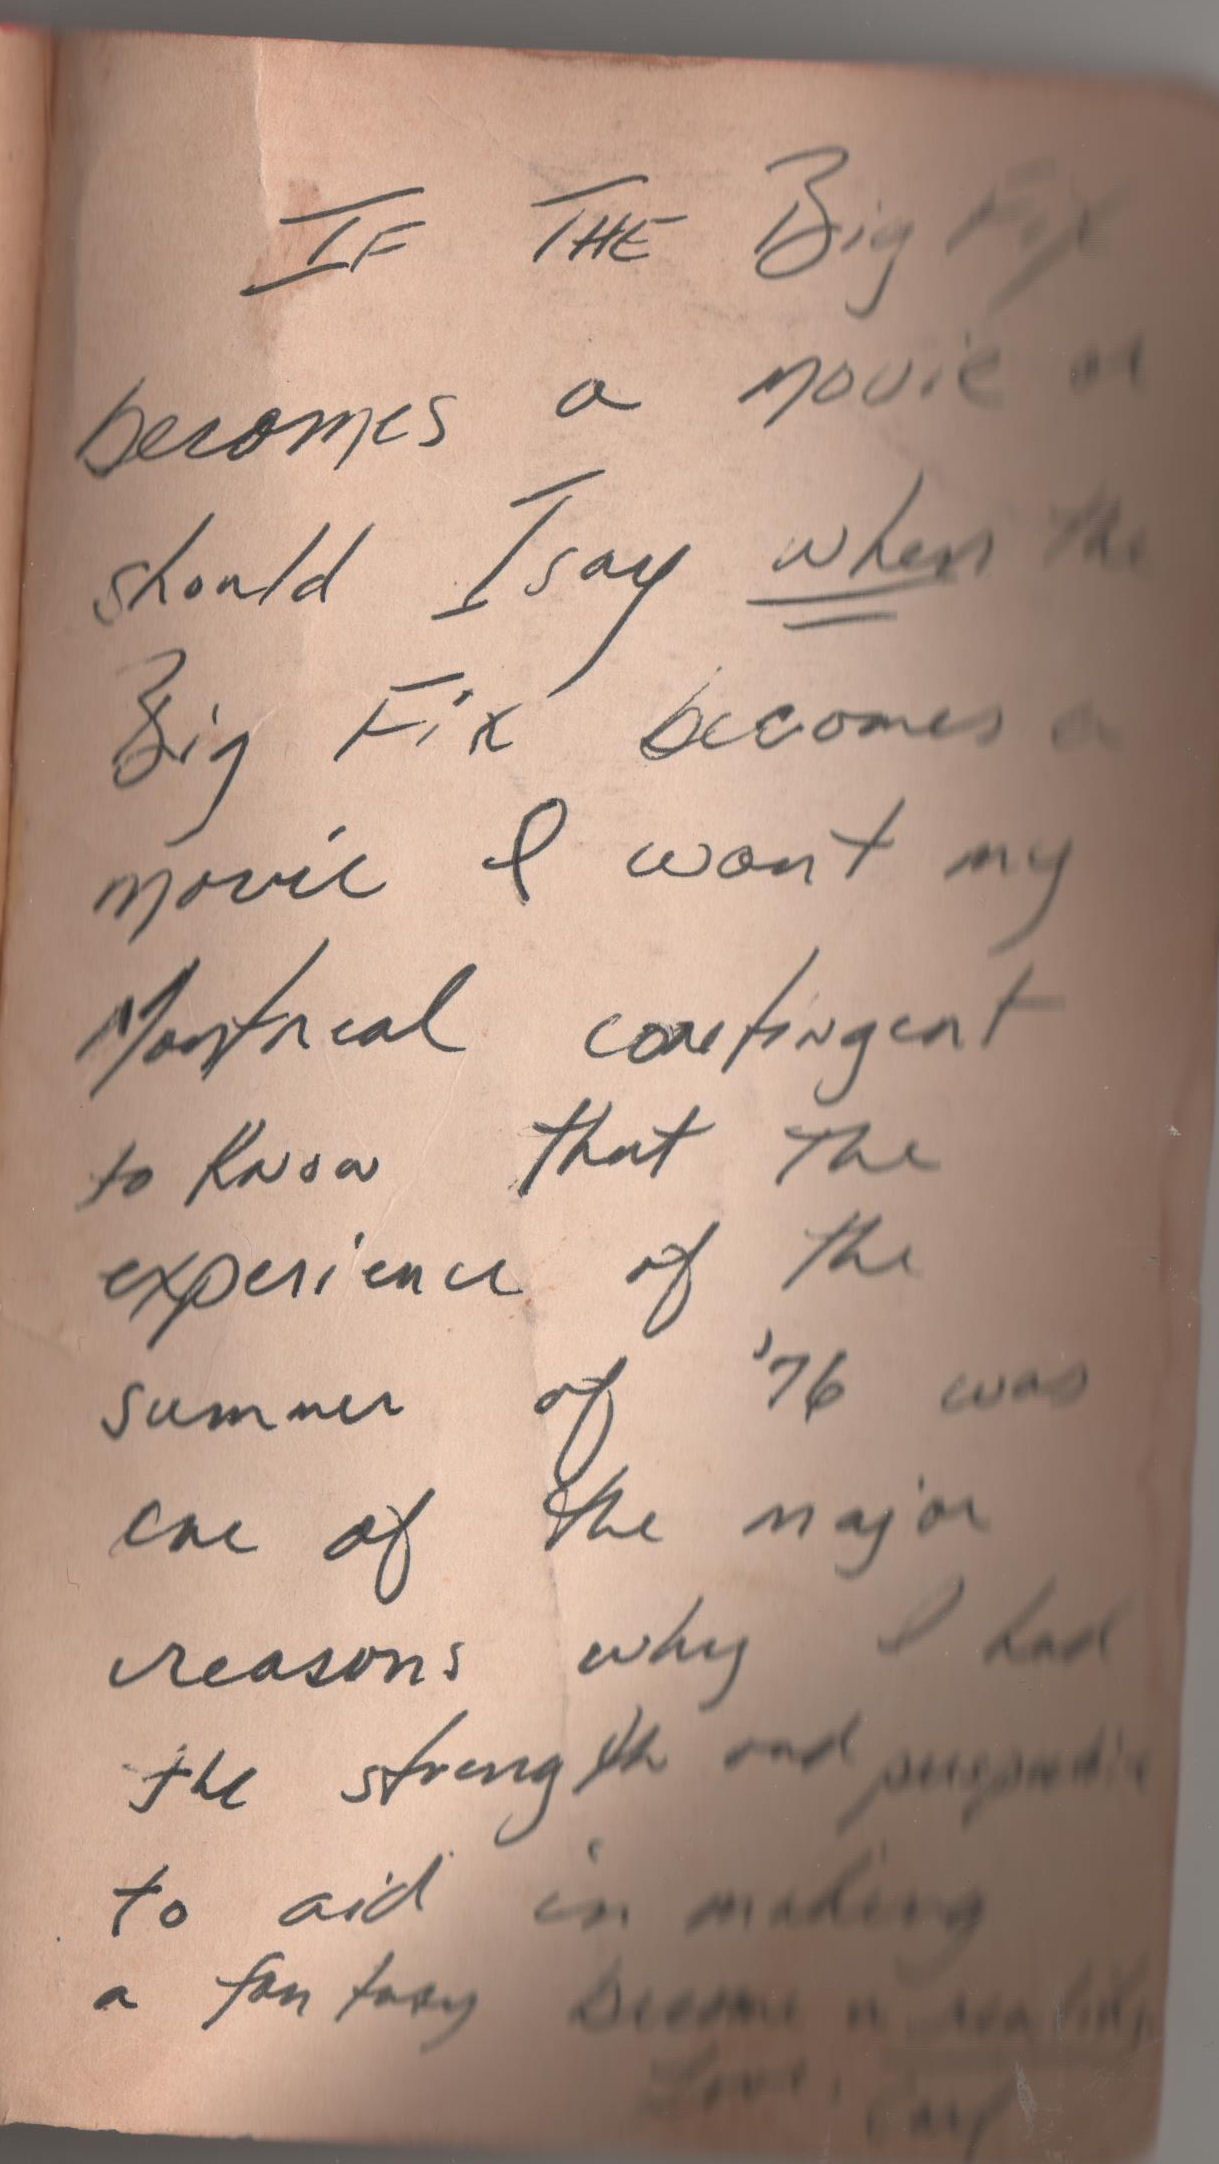 IF THE Big Fix
becomes a movie or
should I say when the
Big Fix becomes a
movie I want my
Montreal contingent
to know that the
experience of the
summer of '76 was
one of the major
reasons why I had
the strength and perspective
to aid in making
a fantasy become a reality
Love, Carl